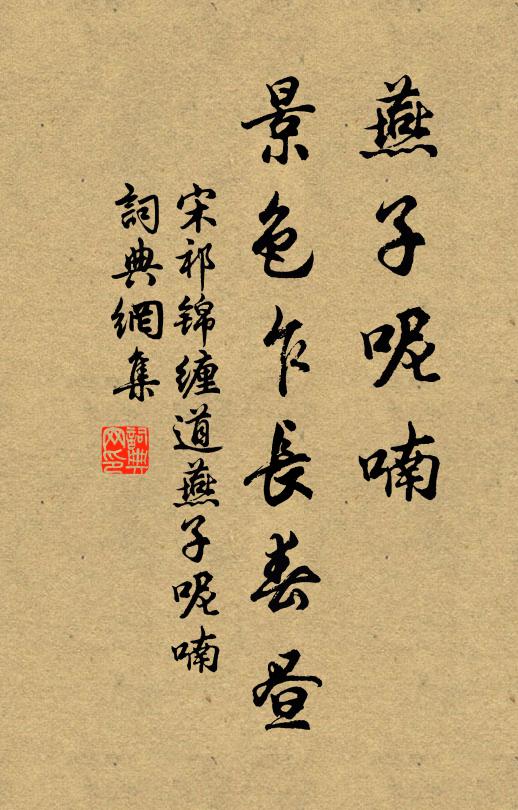 燕子呢喃
景色乍長春昼
宋祁锦缠道燕子呢喃
詞典網集
詞典
网印